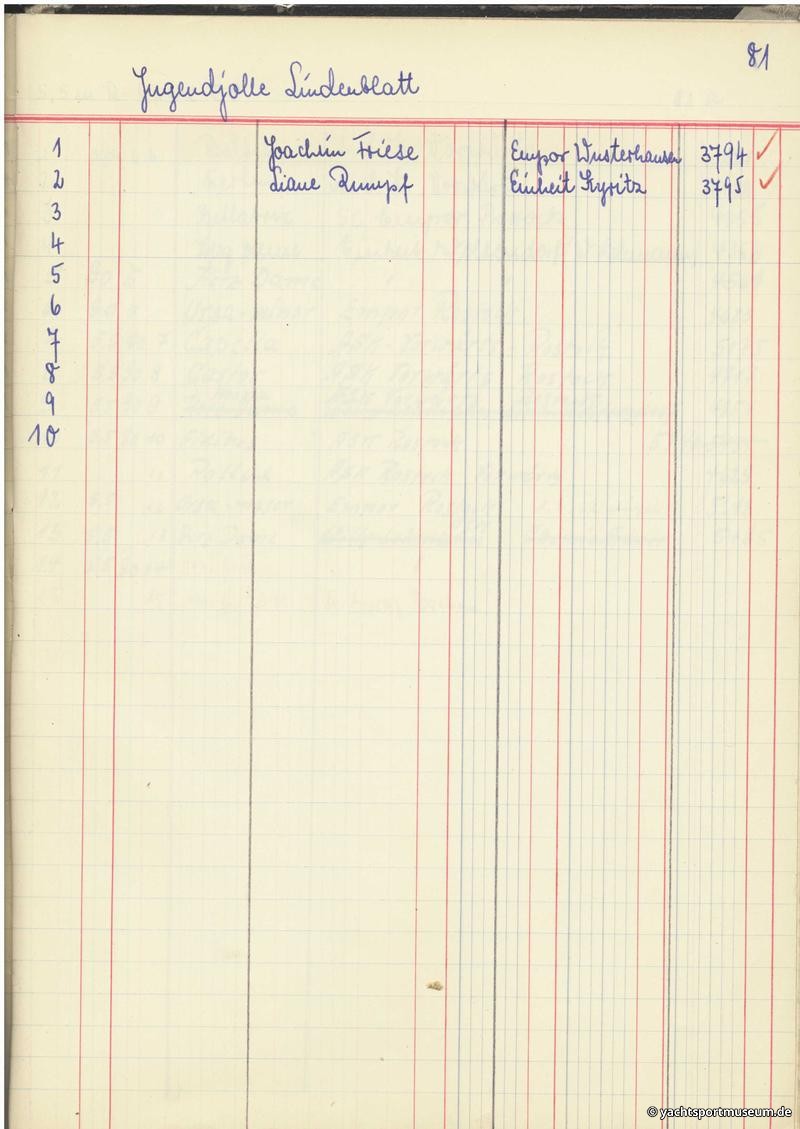 81
Jugendjolle Lindenblatt
1 Joachim Friese Empor Wusterhausen 3794 ✓
2 Liane Rumpf Einheit Kyritz 3795 ✓
3
4
5
6
7
8
9
10
© yachtsportmuseum.de